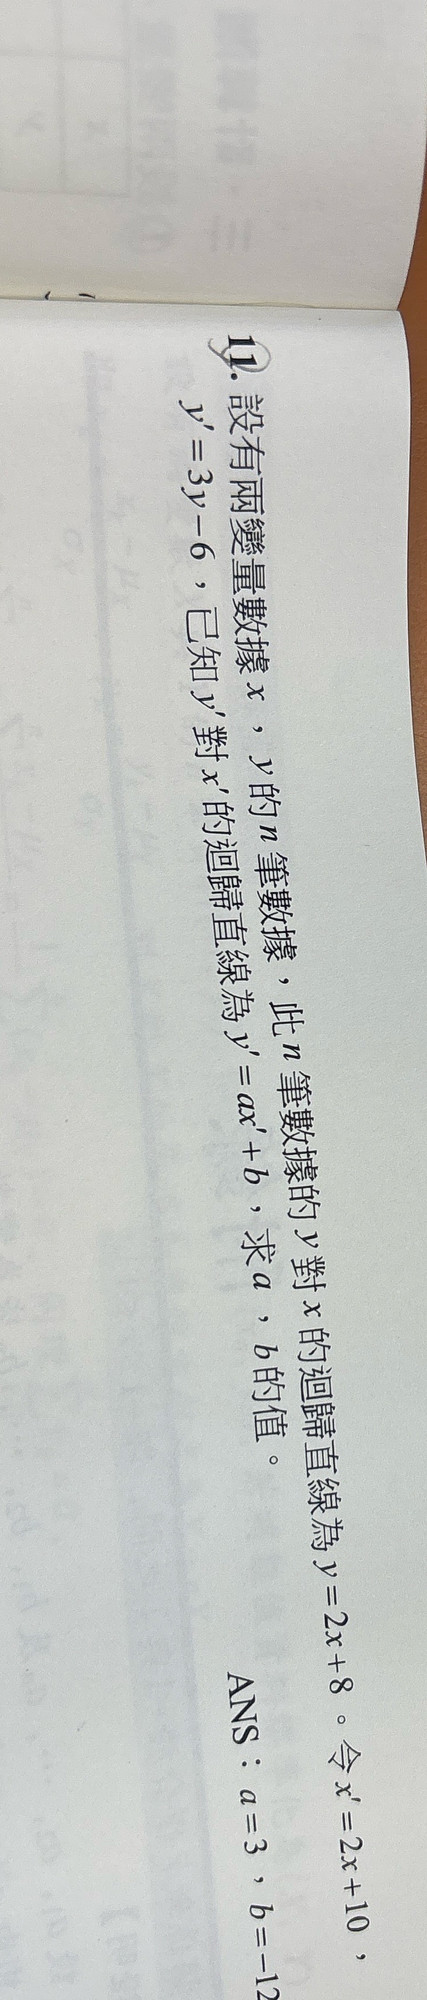 11. 設有兩變量數據 x，y 的 n 筆數據，此 n 筆數據的 y 對 x 的迴歸直線為 y=2x+8。令 x′=2x+10，
y′=3y−6，已知 y′ 對 x′ 的迴歸直線為 y′=ax′+b，求 a，b 的值。
ANS：a=3，b=−12